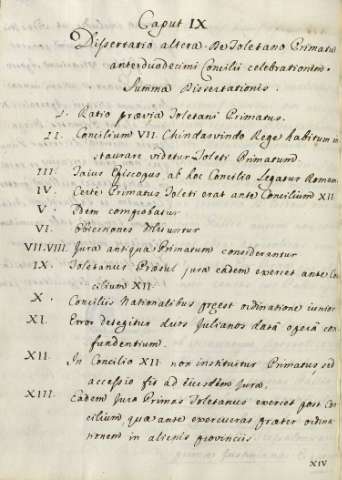 Caput IX
Dissertatio altera. De Toletano Primatu
ante duodecimi Concilii celebrationem.
Summa Dissertationis.
I. Ratio prævia Toletani Primatus.
II. Concilium VII. Chindasvindo Rege habitum in
staurare videtur Toleti Primatum
III. Taius Episcopus ab hoc Concilio Legatur Romam
IV. Certe Primatus Toleti erat ante Concilium XII
V. Idem comprobatur
VI. Obiectiones diluuntur
VII.VIII. Jura antiqua Primatum considerantur
IX. Toletanus Præsul jura eadem exercet ante Con
cilium XII
X. Conciliis Nationalibus præest ordinatione iunior
XI. Error detegitur duos Julianos data opera con
fundentium.
XII. In Concilio XII. non instituitur Primatus, sed
accessio fit ad eiusdem jura.
XIII. Eadem Jura Primas Toletanus exercet post Con
cilium, quæ ante exercuerat præter ordina
tionem in alienis provinciis
XIV